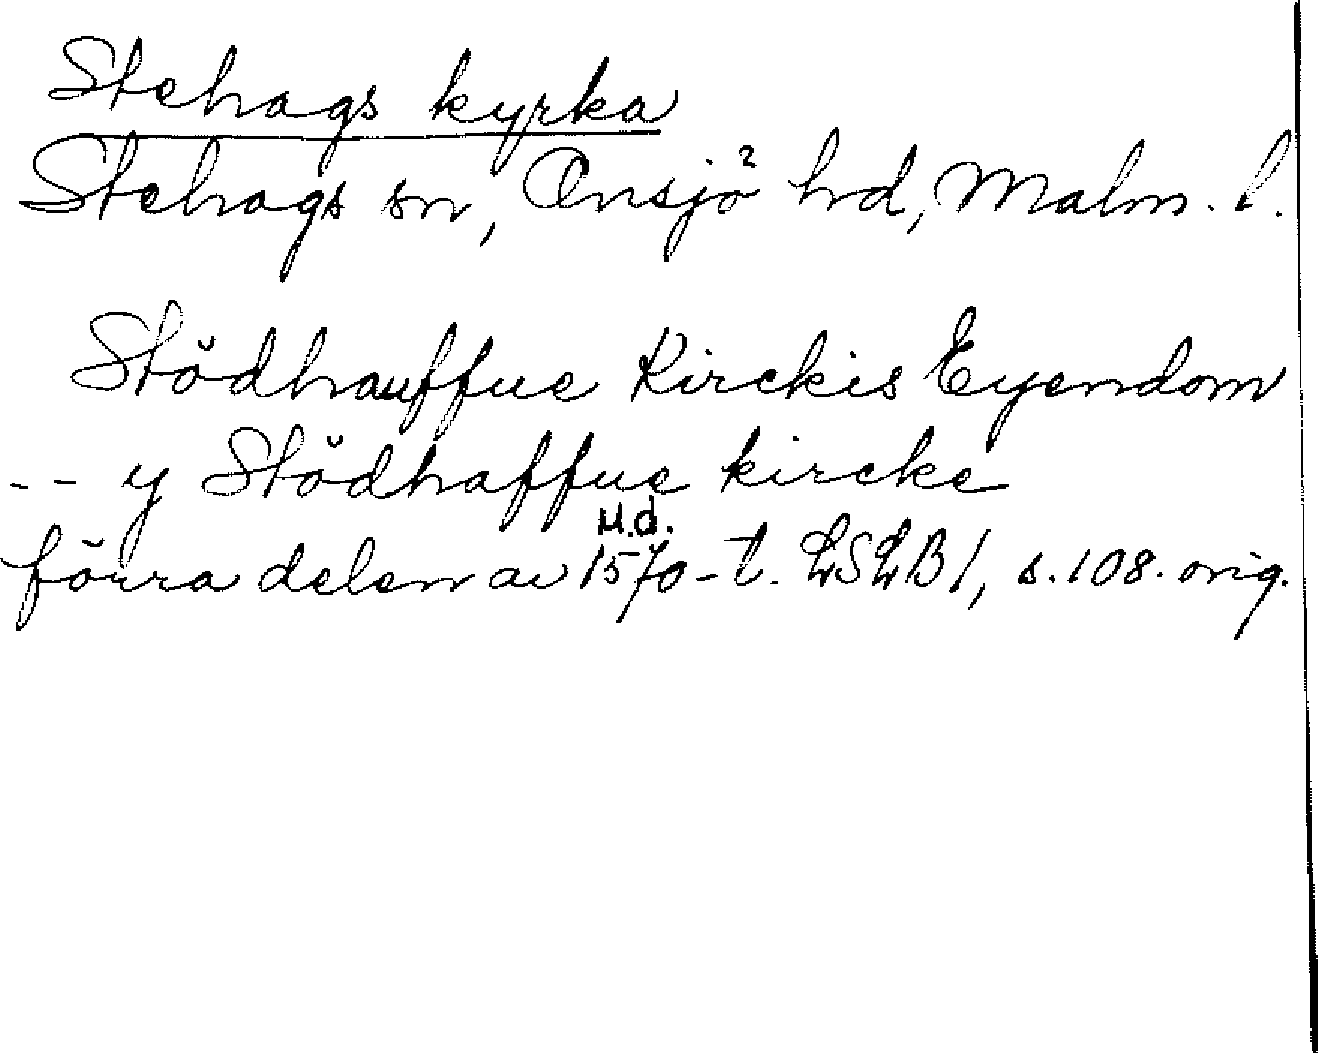 Stehags kyrka
Stehags sn, Onsjö hd, Malm. l.
Stödhauffue Kirckis Eyendom
-- y Stödhaffue kircke
u.d.
förra delen av 1570-t. LSLB 1, s. 108. orig.